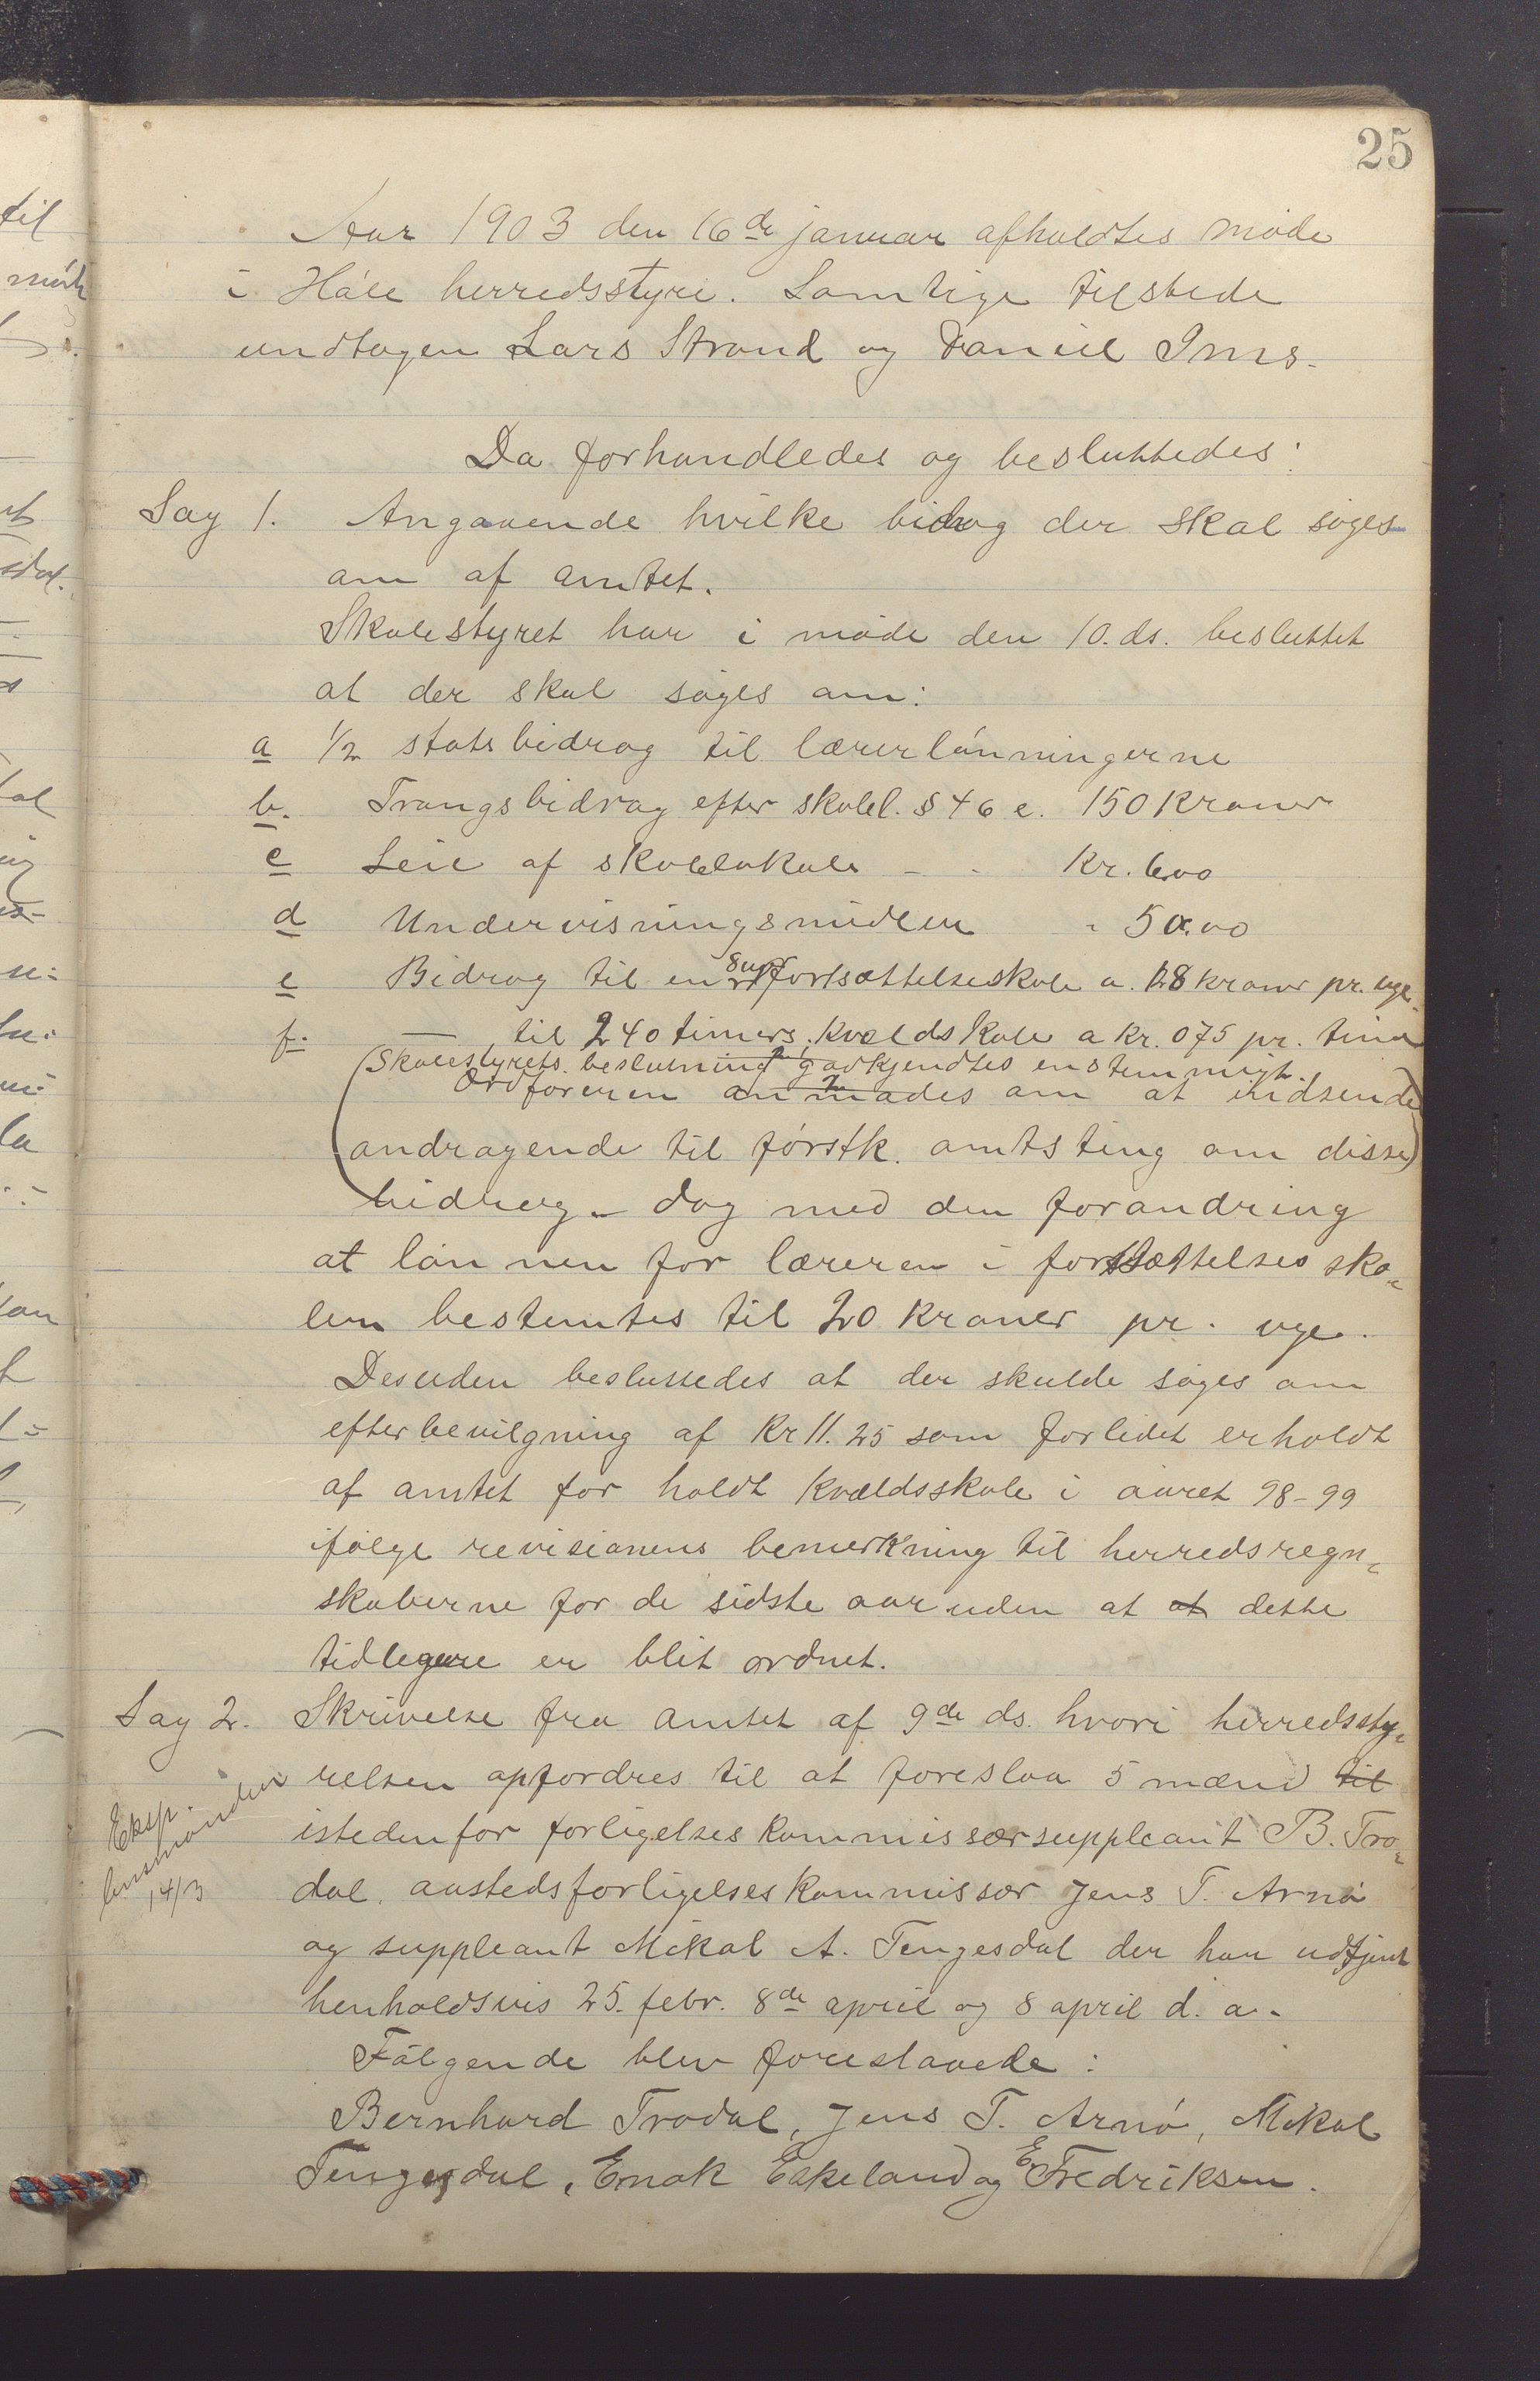 25
Aar 1903 den 16de januar afholdtes møde
i Håle herredsstyre. Samtlige tilstede
undtagen Lars Strand og Daniel Ims.
Da forhandledes og besluttedes:
Sag 1. Angaaende hvilke bidrag der skal søges
om af amtet.
Skolestyret har i møde den 10. ds. besluttet
at der skal søges om:
a 1/2 statsbidrag til lærerlønningerne
b. Trangsbidrag efter skolel. § 46 e. 150 kroner
c Leie af skolelokale - - Kr. 6.00
d Undervisningsmidler " 50.00
e Bidrag til en 8 ugers fortsættelseskole a. 18 kroner pr. uge.
f. — til 240 timers kvældskole a kr. 075 pr. time
(Skolestyrets beslutning godkjendtes enstemmigt.
Ordføreren anmodes om at indsende
andragende til førstk. amtsting om disse)
bidrag - dog med den forandring
at lønnen for læreren i fortsættelsessko-
len bestemtes til 20 kroner pr. uge.
Desuden besluttedes at der skulde søges om
efterbevilgning af Kr 11.25 som forlidet erholdt
af amtet for holdt kvældsskole i aaret 98-99
ifølge revisionens bemerkning til herredsregn-
skaberne for de sidste aar uden at at dette
tidligere er blit ordnet.
Sag 2. Skrivelse fra amtet af 9de ds. hvori herredssty-
relsen opfordres til at foreslaa 5 mænd til
istedenfor forligelseskommissærsuppleant B. Tro-
dal, aastedsforligelseskommissær Jens T. Arnø
og suppleant Mikal A. Tengesdal der har udtjent
henholdsvis 25. febr. 8de april og 8 april d. a.
Eksp.
lensmanden
14/3
Følgende blev foreslaaede:
Bernhard Trodal, Jens T. Arnø, Mikal
Tengesdal, Enok Eskeland og E Fredriksen.